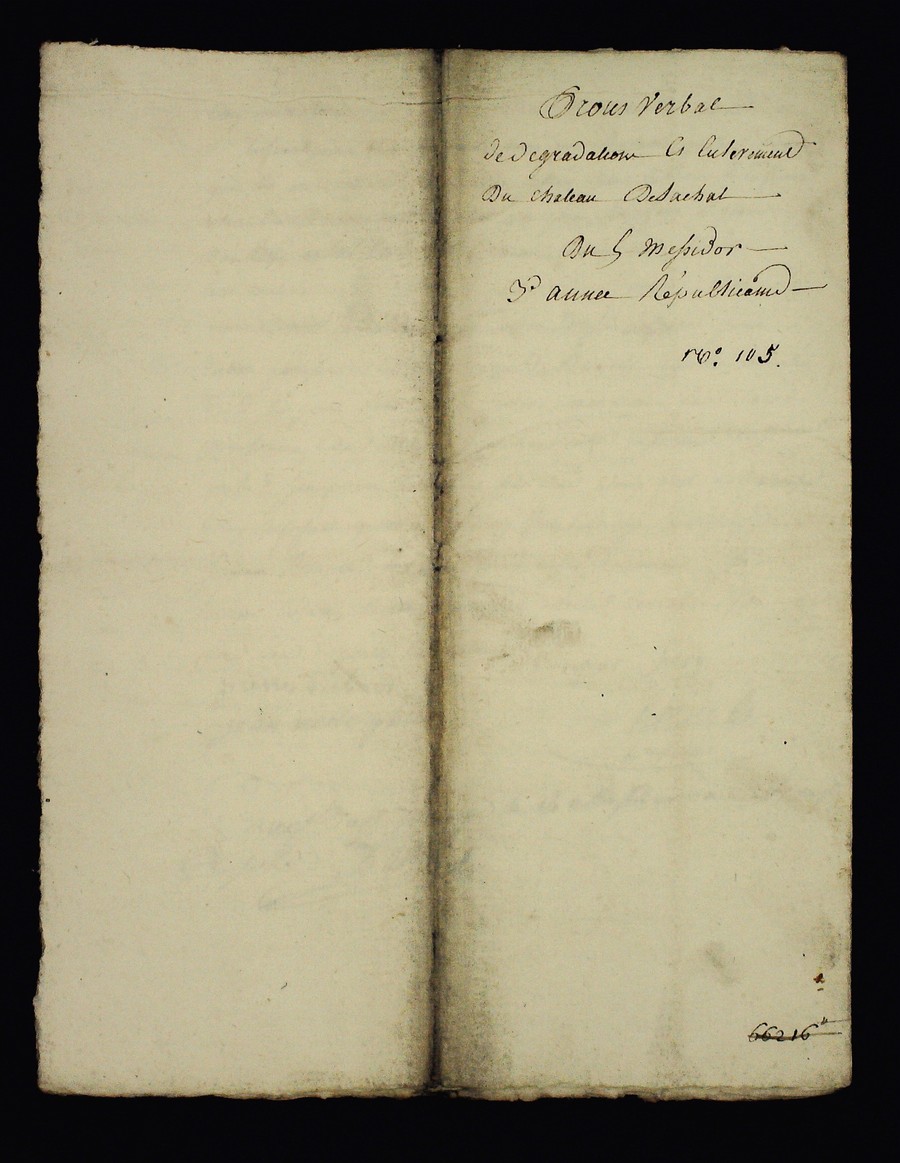 Procès Verbal
de degradation Et Enlevement
Du chateau De Sachat
Du 5 Messidor
3e année Républicaine
No. 105.
66216